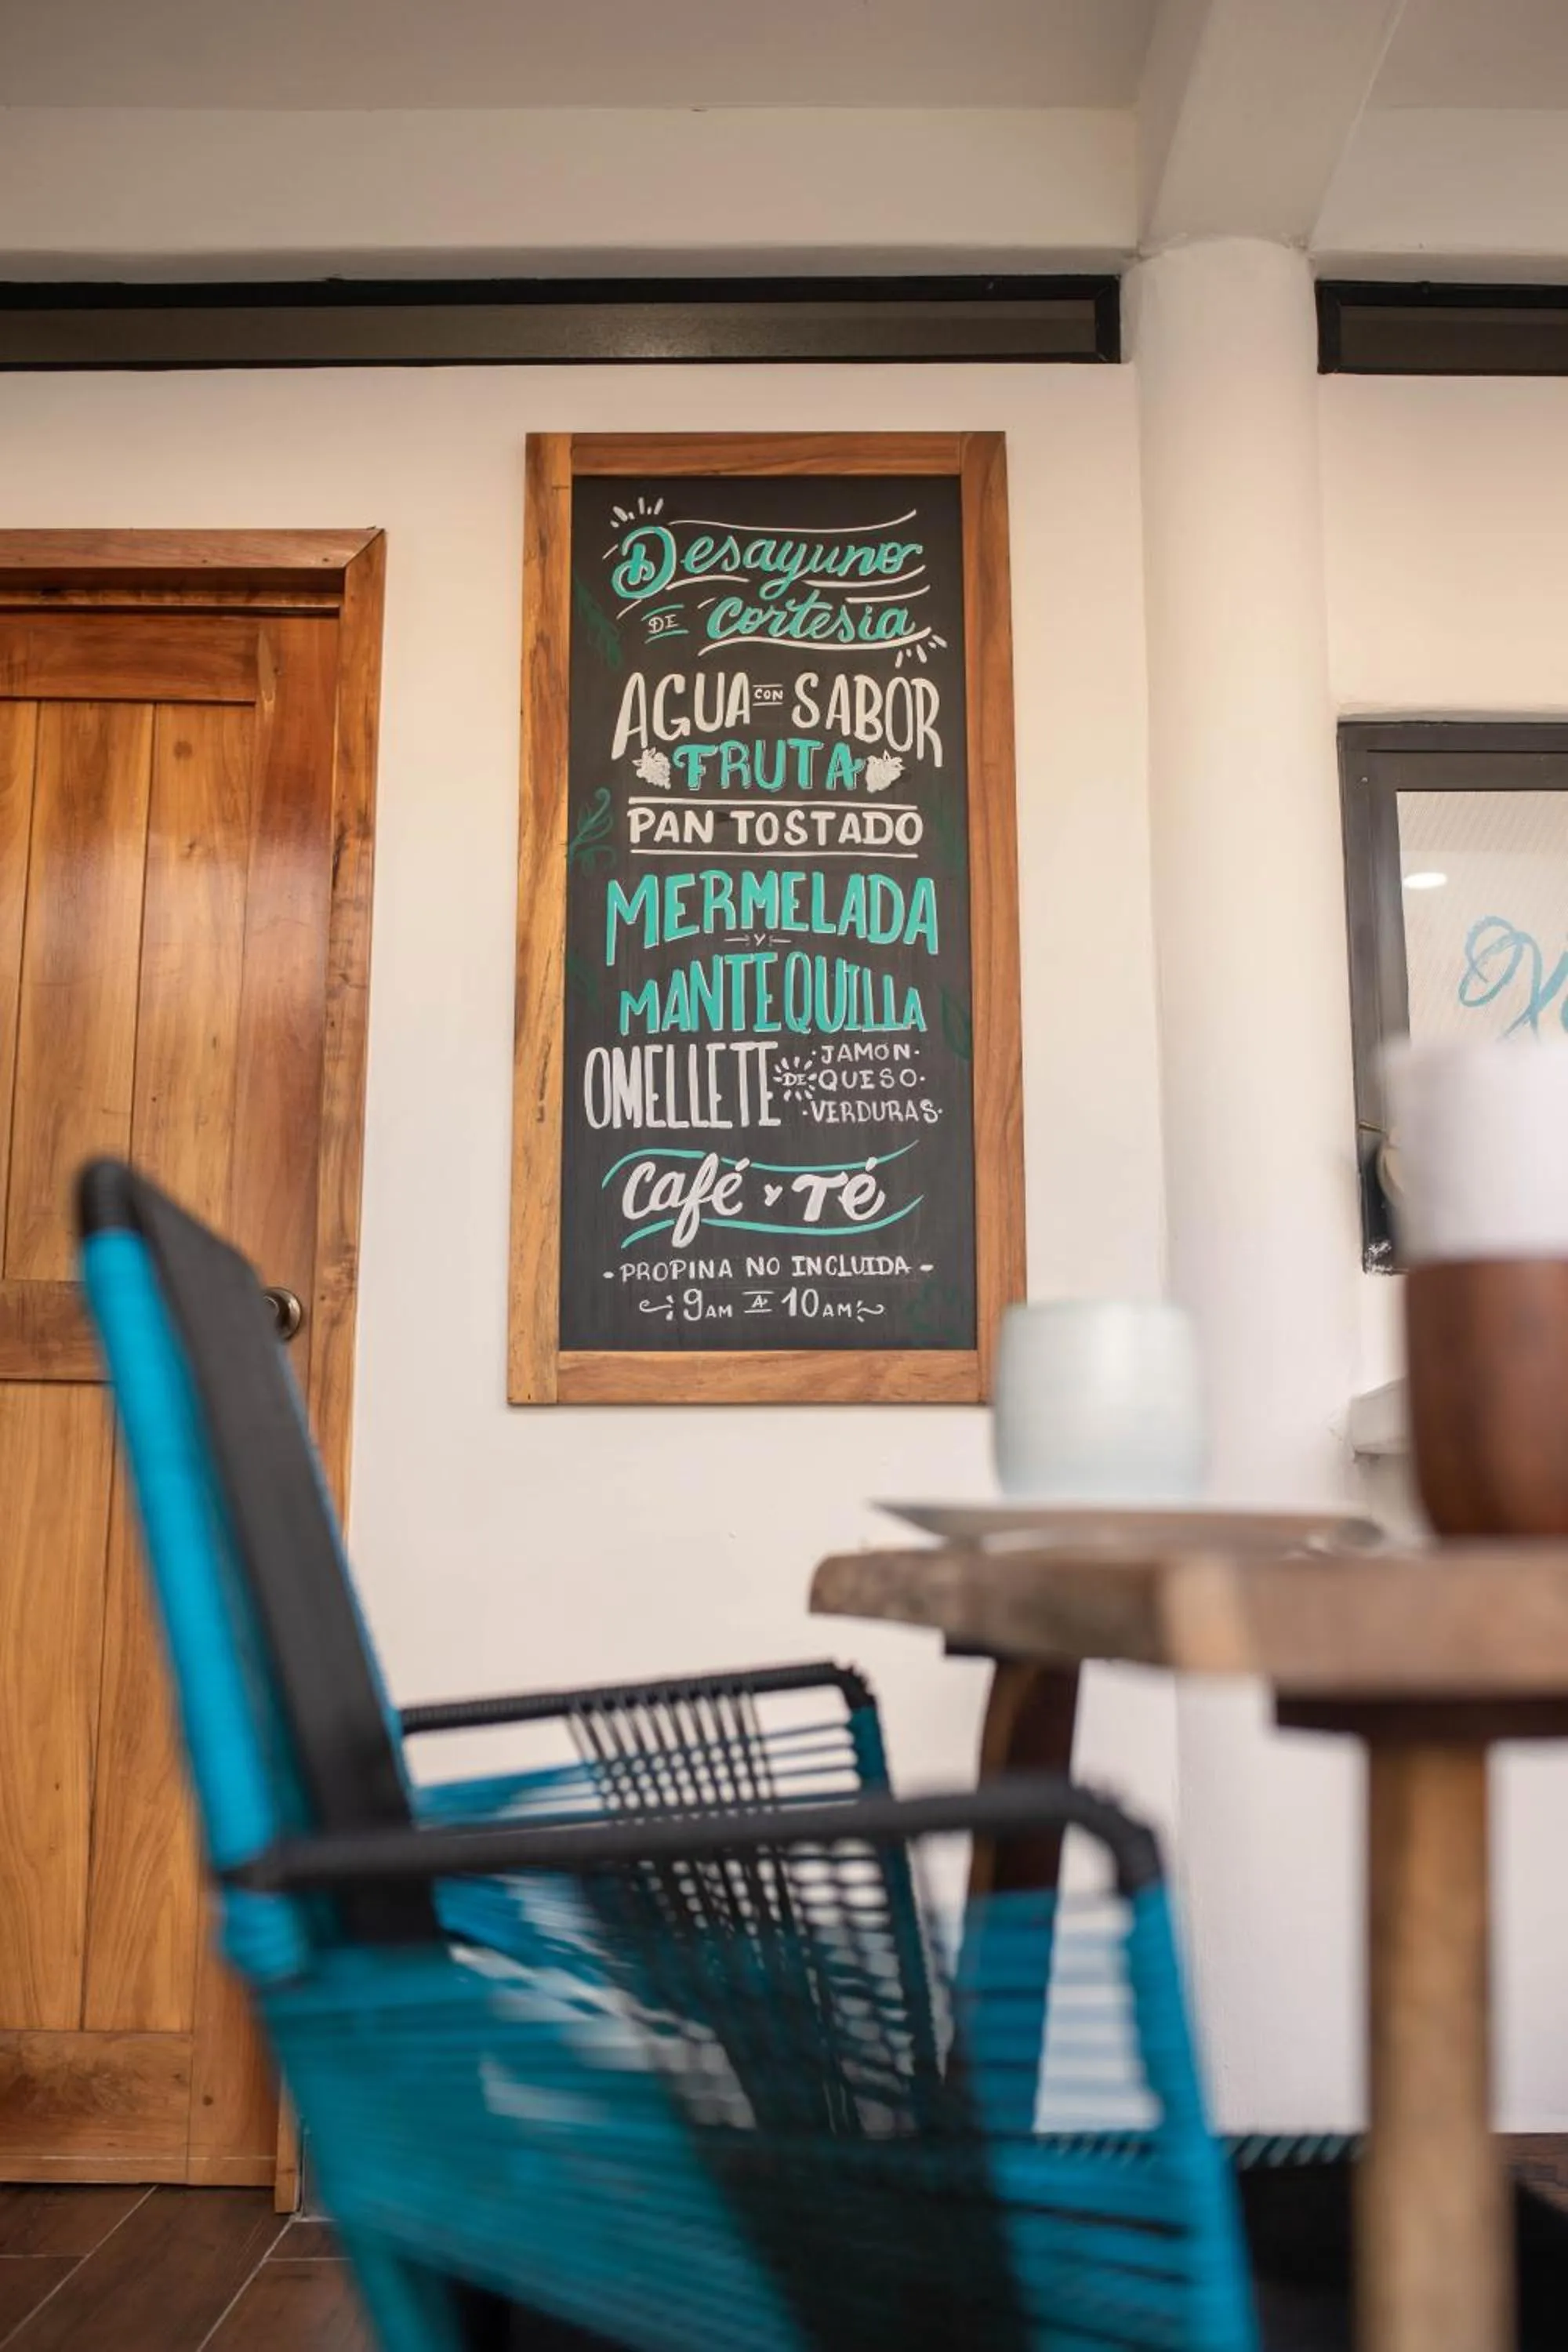 Desayuno
DE Cortesia
AGUA CON SABOR
FRUTA
PAN TOSTADO
MERMELADA
Y
MANTEQUILLA
OMELLETE DE ·JAMÓN·
·QUESO·
·VERDURAS·
Café y Té
- PROPINA NO INCLUIDA -
9AM A 10AM